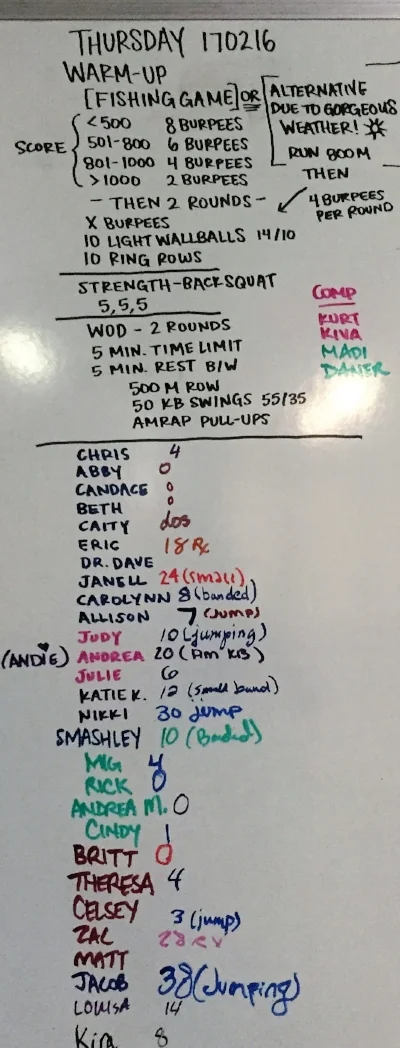 THURSDAY 170216
WARM-UP
[FISHING GAME] OR
SCORE
<500 8 BURPEES
501-800 6 BURPEES
801-1000 4 BURPEES
>1000 2 BURPEES
- THEN 2 ROUNDS -
X BURPEES
10 LIGHT WALLBALLS 14/10
10 RING ROWS
ALTERNATIVE
DUE TO GORGEOUS
WEATHER!
RUN 800M
THEN
4 BURPEES
PER ROUND
STRENGTH-BACKSQUAT
5,5,5
WOD - 2 ROUNDS
5 MIN. TIME LIMIT
5 MIN. REST B/W
500 M ROW
50 KB SWINGS 55/35
AMRAP PULL-UPS
COMP
KURT
KIVA
MADI
DANER
CHRIS 4
ABBY 0
CANDACE 0
BETH 0
CAITY dos
ERIC 18 Rx
DR. DAVE
JANELL 24 (small)
CAROLYNN 8 (banded)
ALLISON 7 (JUMP)
JUDY 10 (jumping)
(ANDIE) ANDREA 20 (Am KB)
JULIE 6
KATIE K. 12 (small band)
NIKKI 30 Jump
SMASHLEY 10 (Banded)
MIG 4
RICK 0
ANDREA M. 0
CINDY 1
BRITT 0
THERESA 4
CELSEY 3 (jump)
ZAC 28
MATT
JACOB 38 (Jumping)
LOUISA 14
Kira 8